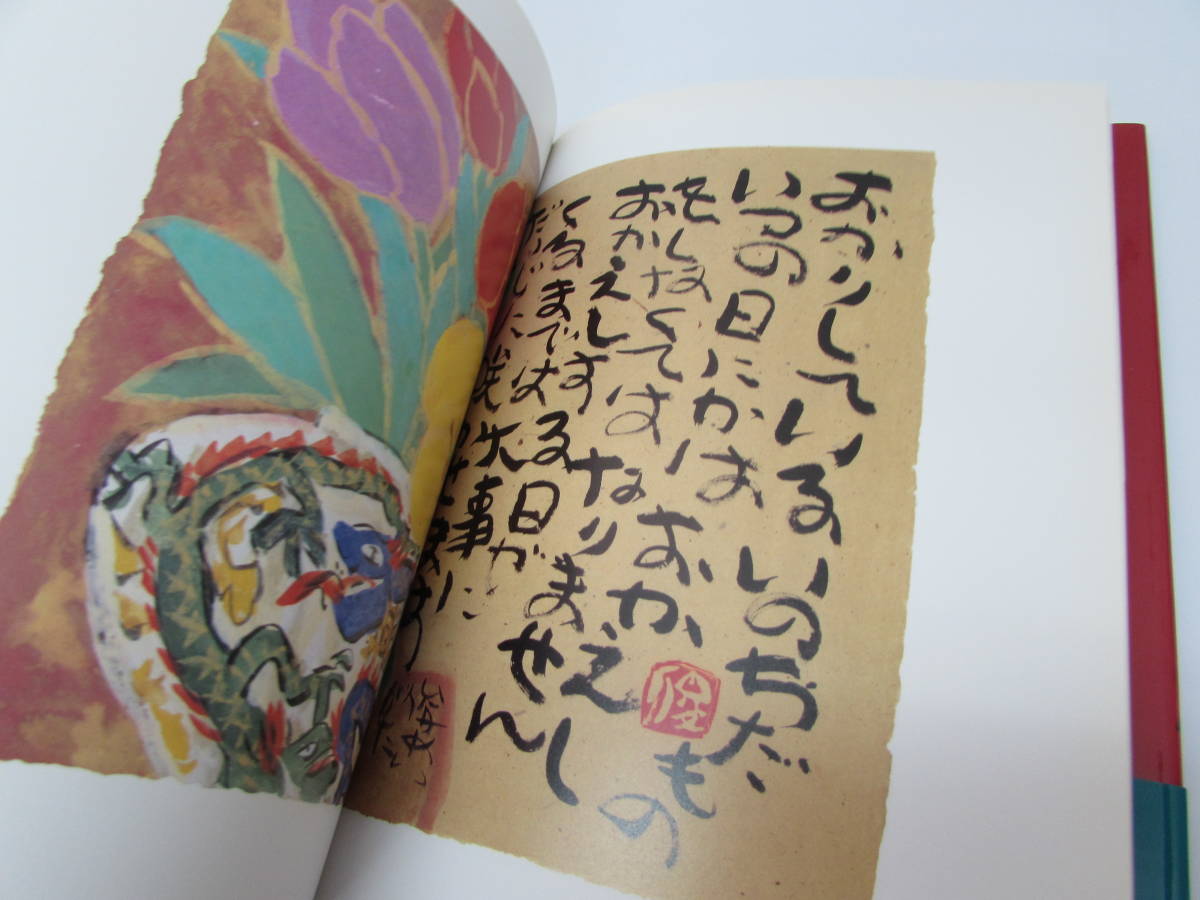 おかりしている いのちだもの
いつの日にかは おかえし
をしなくては なりません
おかえしする日が
くるまでは 大事に
だいじに
俊